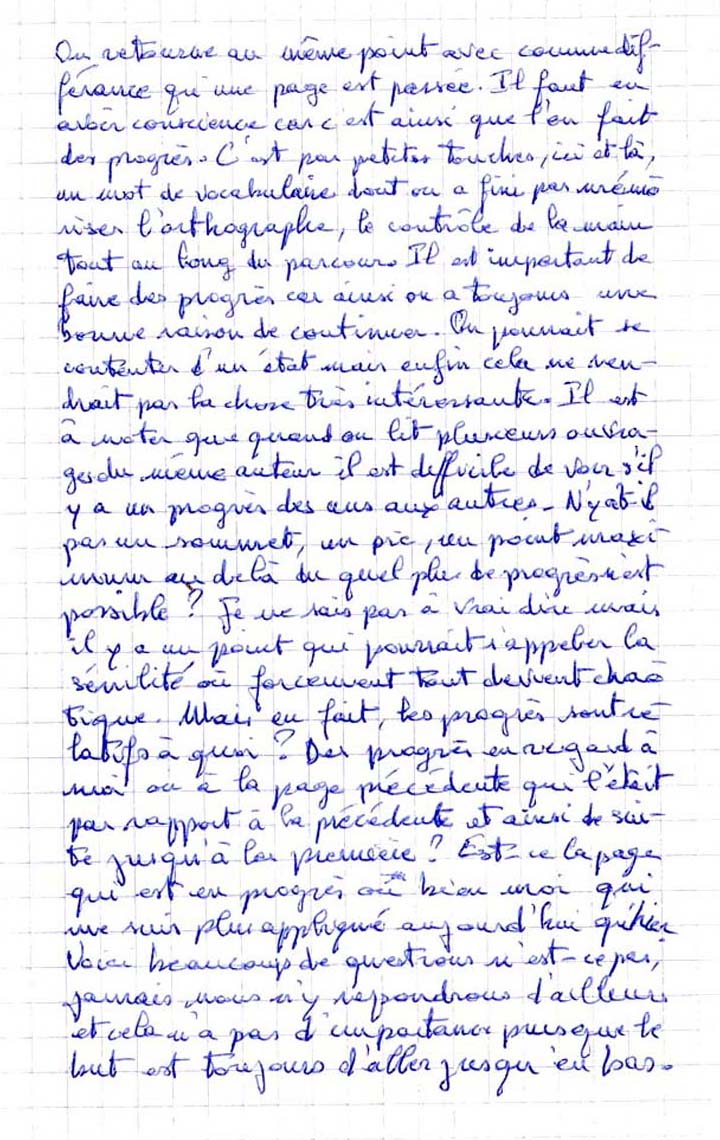 On retourne au même point avec comme dif-
férance qu'une page est passée. Il faut en
avoir conscience car c'est ainsi que l'on fait
des progrès. C'est par petites touches, ici et là,
un mot de vocabulaire dont on a fini par mémo
riser l'orthographe, le contrôle de la main
tout au long du parcours. Il est important de
faire des progrès car ainsi on a toujours une
bonne raison de continuer. On pourrait se
contenter d'un état mais enfin cela ne ren-
drait pas la chose très intéressante. Il est
à noter que quand on lit plusieurs ouvra-
ges du même auteur il est difficile de voir s'il
y a un progrès des uns aux autres. N'y a t-il
pas un sommet, un pic, un point maxi
mum au delà du quel plus de progrès n'est
possible ? Je ne sais pas à vrai dire mais
il y a un point qui pourrait s'appeler la
sénilité où forcement tout devient chao
tique. Mais en fait, les progrès sont re
latifs à quoi ? Des progrès en regard à
moi ou à la page précédente qui l'était
par rapport à la précédente et ainsi de sui-
te jusqu'à la première ? Est-ce la page
qui est en progrès où bien moi qui
me suis plus appliqué aujourd'hui qu'hier
Voici beaucoup de questions n'est-ce pas,
jamais nous n'y repondrons d'ailleurs
et cela n'a pas d'importance puisque le
but est toujours d'aller jusqu'en bas.